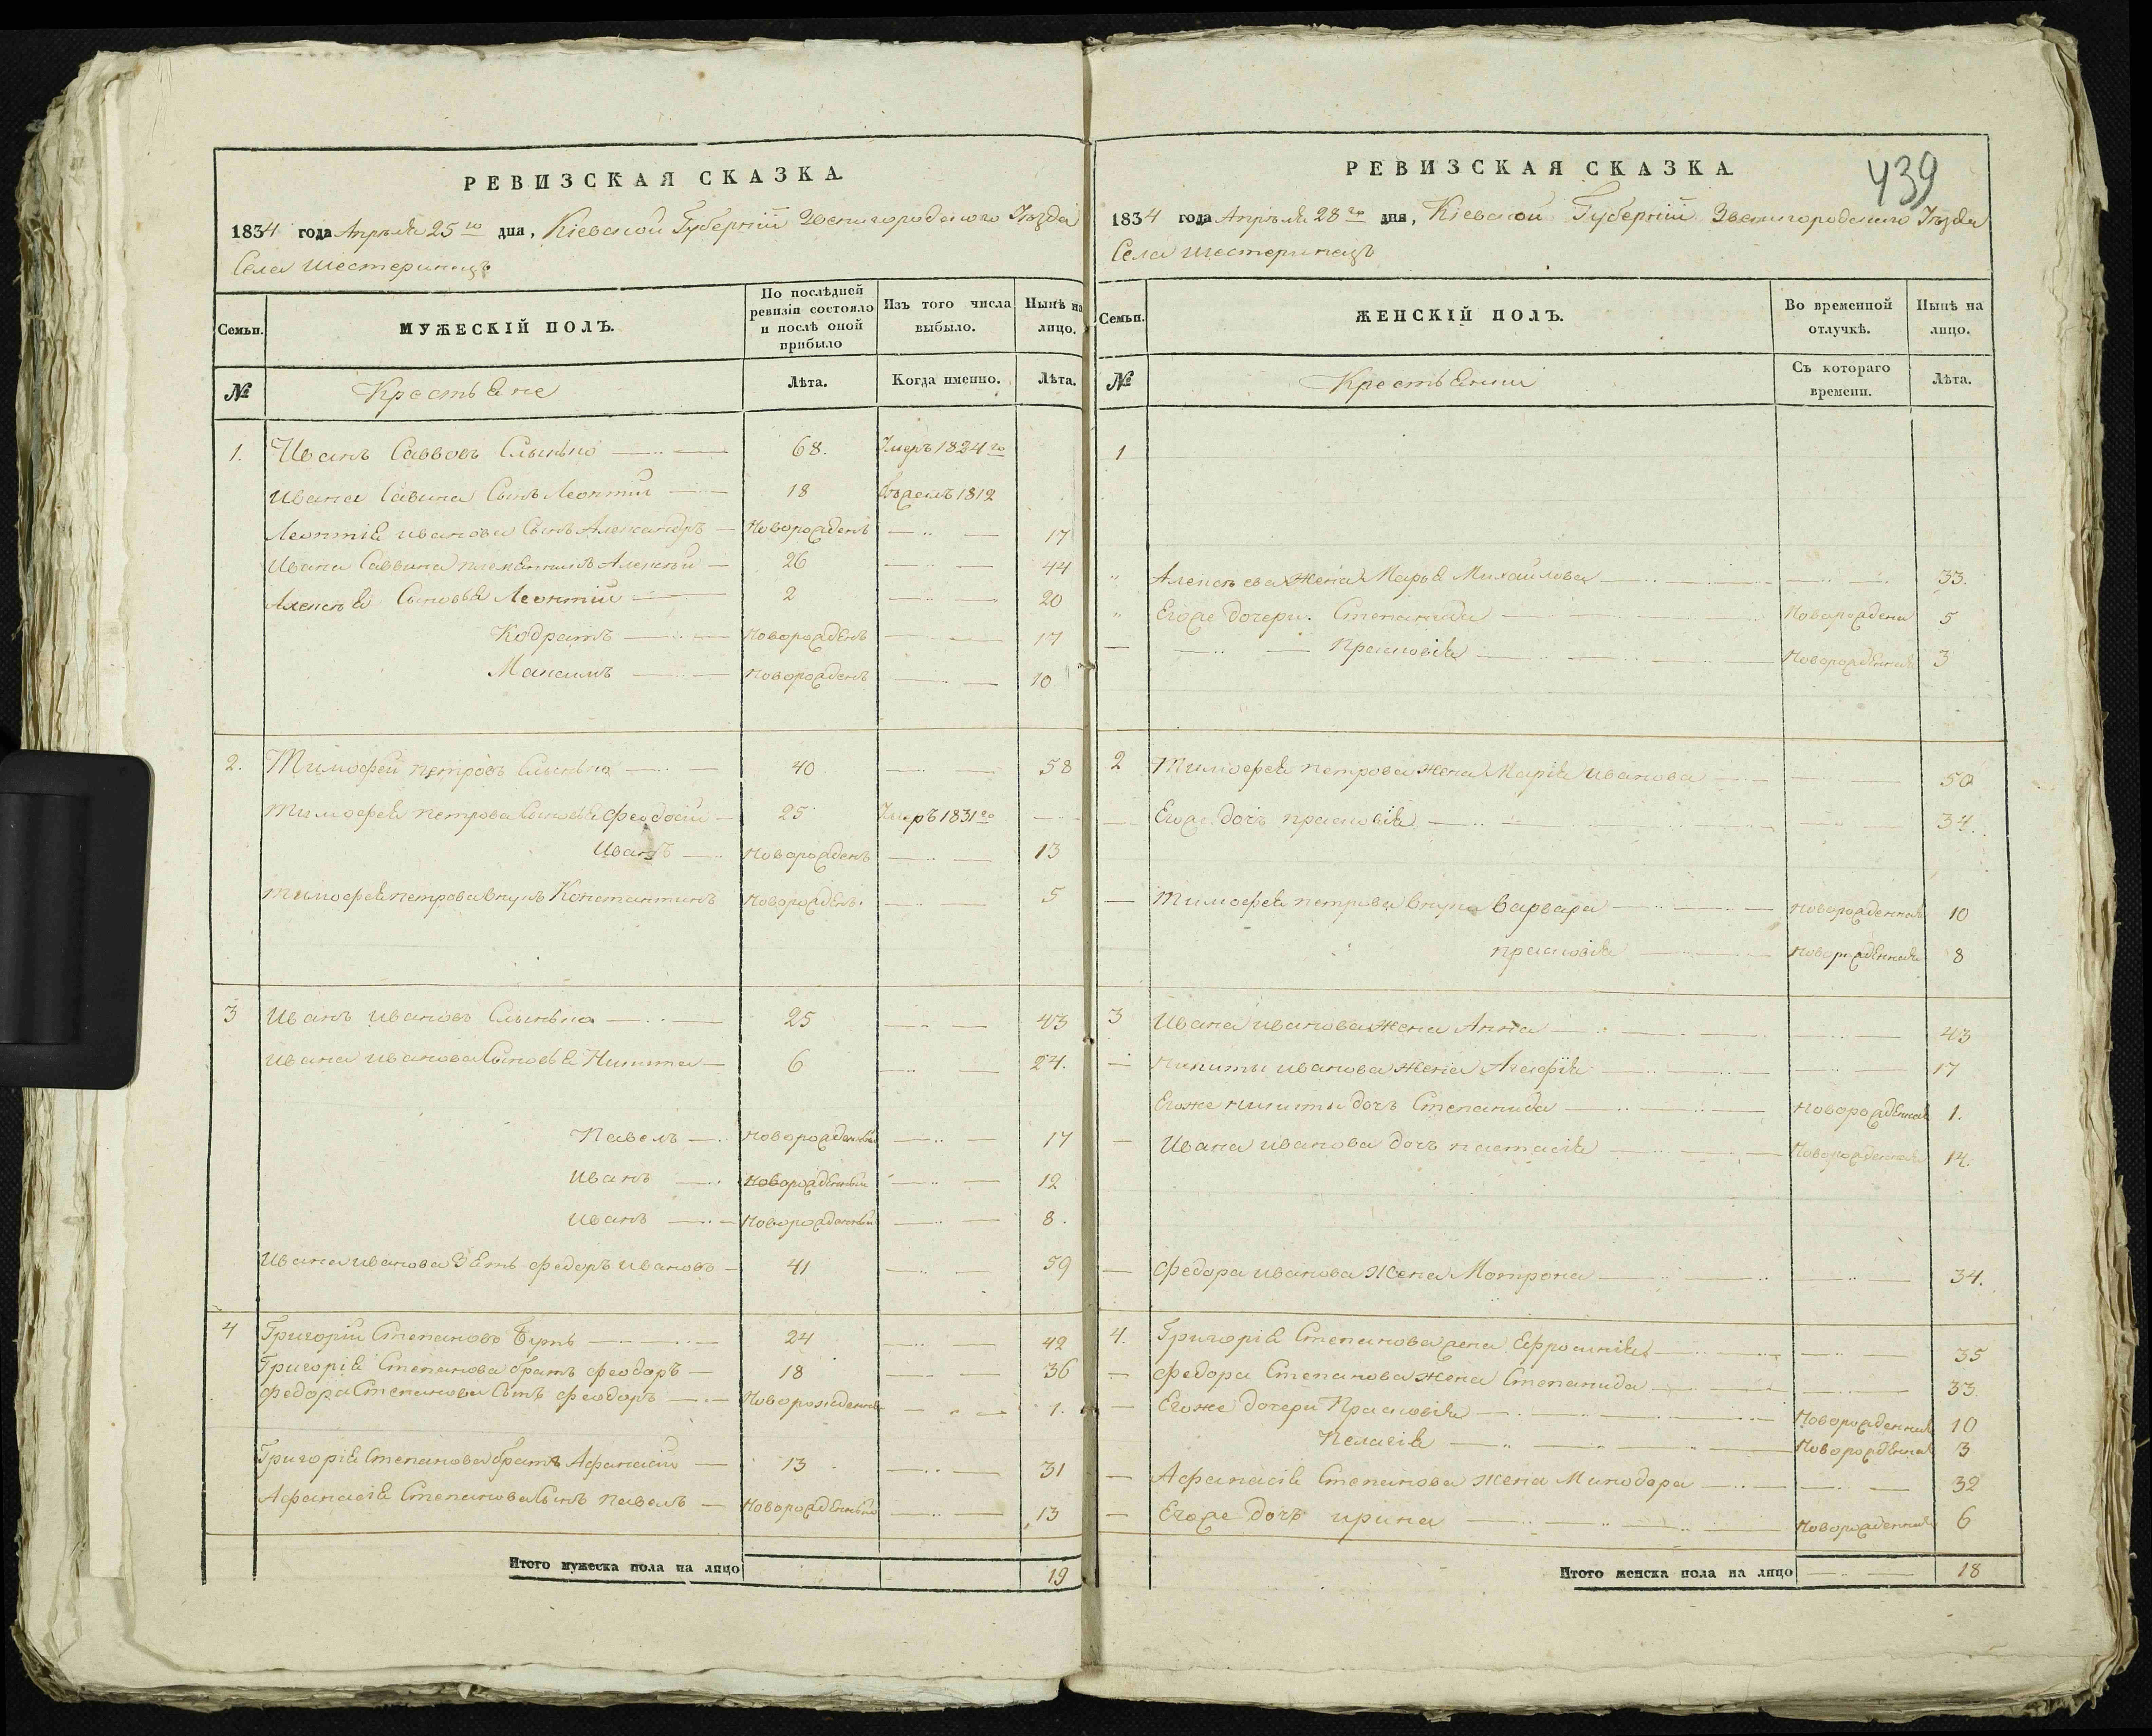 РЕВИЗСКАЯ СКАЗКА
1834 года Апреля 25го дня, Кіевской Губерніи Звенигородского Уезда
Села Шестеринецъ
Семьи.
МУЖЕСКІЙ ПОЛЪ.
По послѣдней ревизіи состояло и послѣ оной прибыло
Изъ того числа выбыло.
Нынѣ на лицо.
№
Крестьяне
Лѣта.
Когда именно.
Лѣта.
1. Иванъ Саввовъ 68. Умеръ 1824го
Ивана Савина Сынъ Леонтій 18 1812
Леонтія иванова Сынъ Александръ Новорожденъ 17
Ивана Саввина племянникъ Алексѣй 26 44
Алексѣя Сыновья Леонтій 2 20
Кодратъ новорожденъ 17
Максимъ новорожденъ 10
2. Тимофей петровъ 40 58
Тимофея петрова Сыновья Феодосій 25 Умеръ 1831го
Иванъ новорожденъ 13
тимофея петрова внукъ Константинъ новорожденъ. 5
3 Иванъ ивановъ 25 43
ивана иванова Сыновья Никита 6 24.
Павелъ новорожденный 17
Иванъ новорожденный 12
Иванъ новорожденный 8.
Ивана иванова Зять федоръ ивановъ 41 59
4 Григорій Степановъ 24 42
Григорія Степанова братъ феодоръ 18 36
федора Степанова Сынъ феодоръ Новорожденный 1.
Григорія Степанова братъ Афанасій 13 31
Афанасія Степанова Сынъ павелъ новорожденный 13
Итого мужеска пола на лицо 19
РЕВИЗСКАЯ СКАЗКА
439
1834 года Апрѣля 28го дня, Кіевской Губерніи Звенигородского Уѣзда
Села Шестеринецъ
Семьи.
ЖЕНСКІЙ ПОЛЪ.
Во временной отлучкѣ.
Нынѣ на лицо.
№
Крестьянки
Съ котораго времени.
Лѣта.
1
" Алексѣева Жена Марья Михайлова 33.
" Егоже дочери. Степанида новорождена 5
Прасковія новорожденная 3
2 Тимофея петрова жена Марія иванова 50
Егоже дочь прасковія 34.
Тимофея петрова внука варвара новорожденная 10
прасковія новорожденная 8
3 Ивана иванова жена Анна 43
никиты иванова жена Агафія 17
Егоже никиты дочь Степанида новорожденная 1.
Ивана иванова дочь настасія новорожденная 14.
федора иванова жена Мотрона 34.
4. Григорія Степанова жена Ефросинія 35
федора Степанова жена Степанида 33.
Егоже дочери Прасковія новорожденная 10
Пелагія новорожденная 3
Афанасія Степанова жена Минодора 32
Егоже дочь ирина новорожденная 6
Итого женска пола на лицо 18